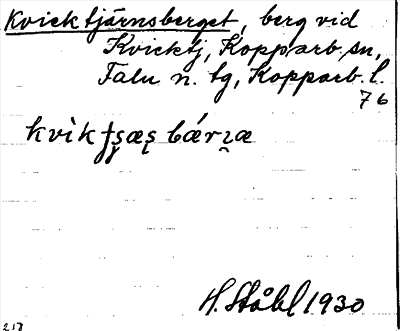 Kvicktjärnsberget, berg vid
Kvicktj, Kopparb. sn,
Falu n. tg, Kopparb. l.
76
H. Ståhl 1930
217